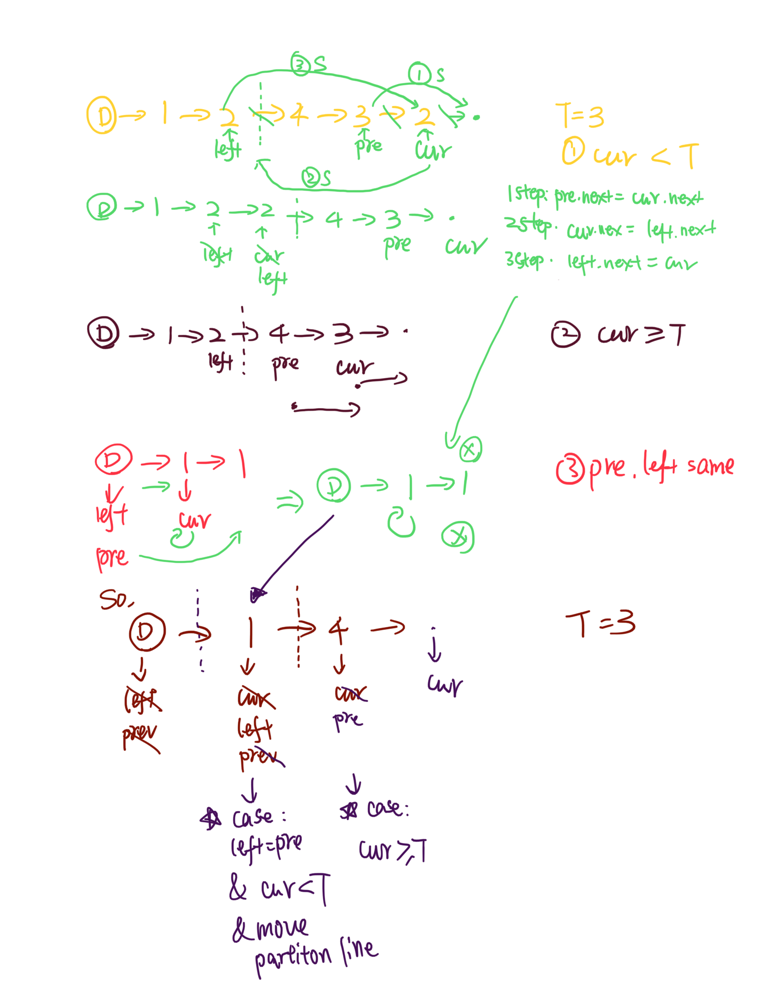 ③S ①S
D → 1 → 2 → 4 → 3 → 2 → .
left pre cur
②S
T=3
① cur < T
D → 1 → 2 → 2 → 4 → 3 → .
left cur pre cur
left
1step: pre.next = cur.next
2step. cur.nex = left.next
3step. left.next = cur
D → 1 → 2 → 4 → 3 → .
left pre cur
② cur ≥ T
D → 1 → 1
left cur
pre
⇒ D → 1 → 1
X
X
③ pre.left same
So,
D → 1 → 4 → .
T=3
left cur cur cur
prev left pre
prev
case: case:
left=pre cur ≥ T
& cur < T
& move
partiton line